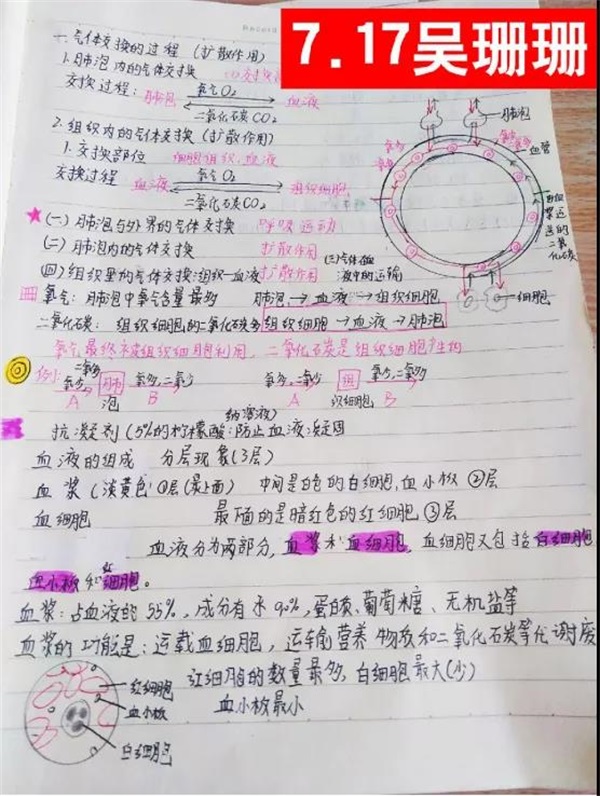 7.17吴珊珊
一.气体交换的过程（扩散作用）
1.肺泡内的气体交换
交换过程：肺泡 氧气O2 血液
二氧化碳CO2
2.组织内的气体交换（扩散作用）
1.交换部位 细胞组织,血液
交换过程 血液 氧气O2 组织细胞
二氧化碳CO2
肺泡
血管
细胞
(一)肺泡与外界的气体交换 呼吸运动
(二)肺泡内的气体交换 扩散作用
(三)气体在血液中的运输
(四)组织里的气体交换:组织—血液 扩散作用
氧气：肺泡中氧气含量最多 肺泡→血液→组织细胞
二氧化碳：组织细胞的二氧化碳多 组织细胞→血液→肺泡
氧气最终被组织细胞利用，二氧化碳是组织细胞产生的
氧少,二氧多 肺泡 氧多,二氧少
A B
氧多,二氧少 组织细胞 氧少,二氧多
A B
抗凝剂(5%的柠檬酸钠溶液):防止血液凝固
血液的组成 分层现象(3层)
血浆(淡黄色)①层(最上面) 中间是白色的白细胞,血小板②层
血细胞 最下面的是暗红色的红细胞③层
血液分为两部分,血浆和血细胞,血细胞又包括白细胞
血小板和红细胞。
血浆：占血液的55%,成分有水90%,蛋白质、葡萄糖、无机盐等
血浆的功能是：运载血细胞，运输营养物质和二氧化碳等代谢废
红细胞
血小板
白细胞
红细胞的数量最多,白细胞最大(少)
血小板最小